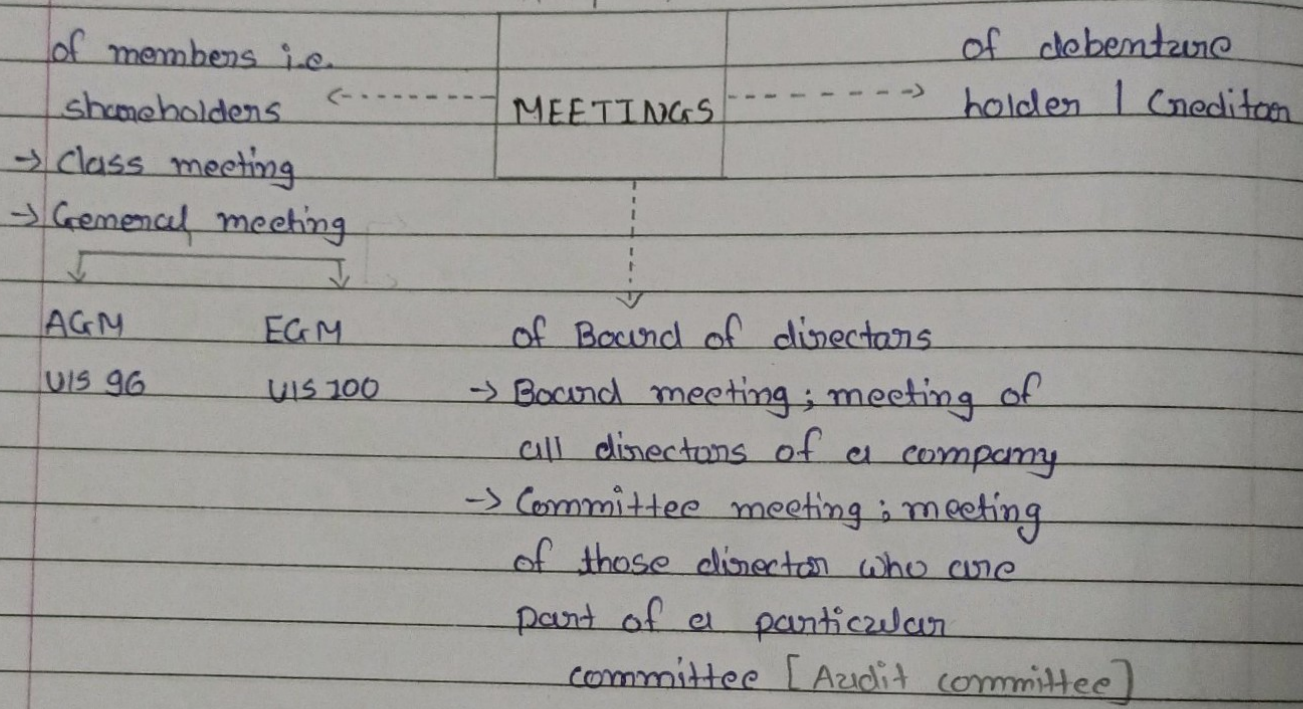 of members i.e.
shareholders
→ Class meeting
→ General meeting
AGM
U/S 96
EGM
U/S 100
MEETINGS
of debenture
holder / Creditor
of Board of directors
→ Board meeting ; meeting of
all directors of a company
→ Committee meeting ; meeting
of those director who are
part of a particular
committee [Audit committee]